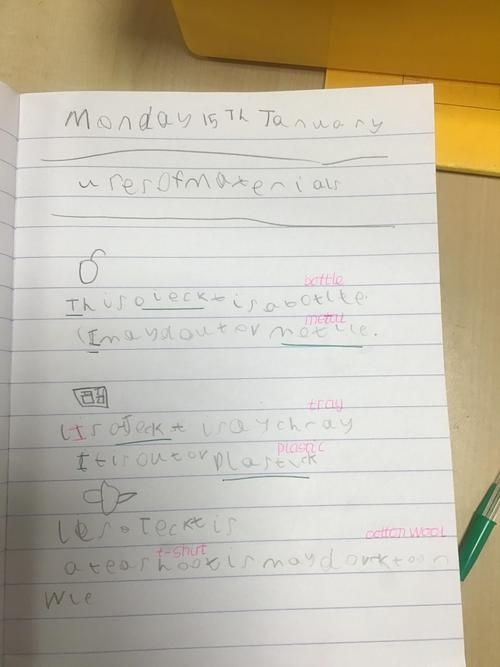 Monday 15Th January
uses of materials
bottle
This oieckt is a botlte.
metal
It maydoutor motlle.
tray
this oJeckt isaychray
plastic
It is outor plastick
oTeckt is
cotton wool
t-shirt
a teashootismaydorktoon
Wle